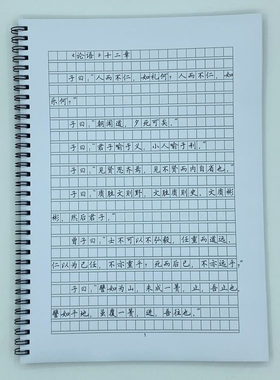 《论语》十二章
子曰:“人而不仁，如礼何？人而不仁，如
乐何？”
子曰:“朝闻道，夕死可矣。”
子曰:“君子喻于义，小人喻于利。”
子曰:“见贤思齐焉，见不贤而内自省也。”
子曰:“质胜文则野，文胜质则史。文质彬
彬，然后君子。”
曾子曰:“士不可以不弘毅，任重而道远。
仁以为己任，不亦重乎？死而后已，不亦远乎？”
子曰:“譬如为山，未成一篑，止，吾止也。
譬如平地，虽覆一篑，进，吾往也。”
1